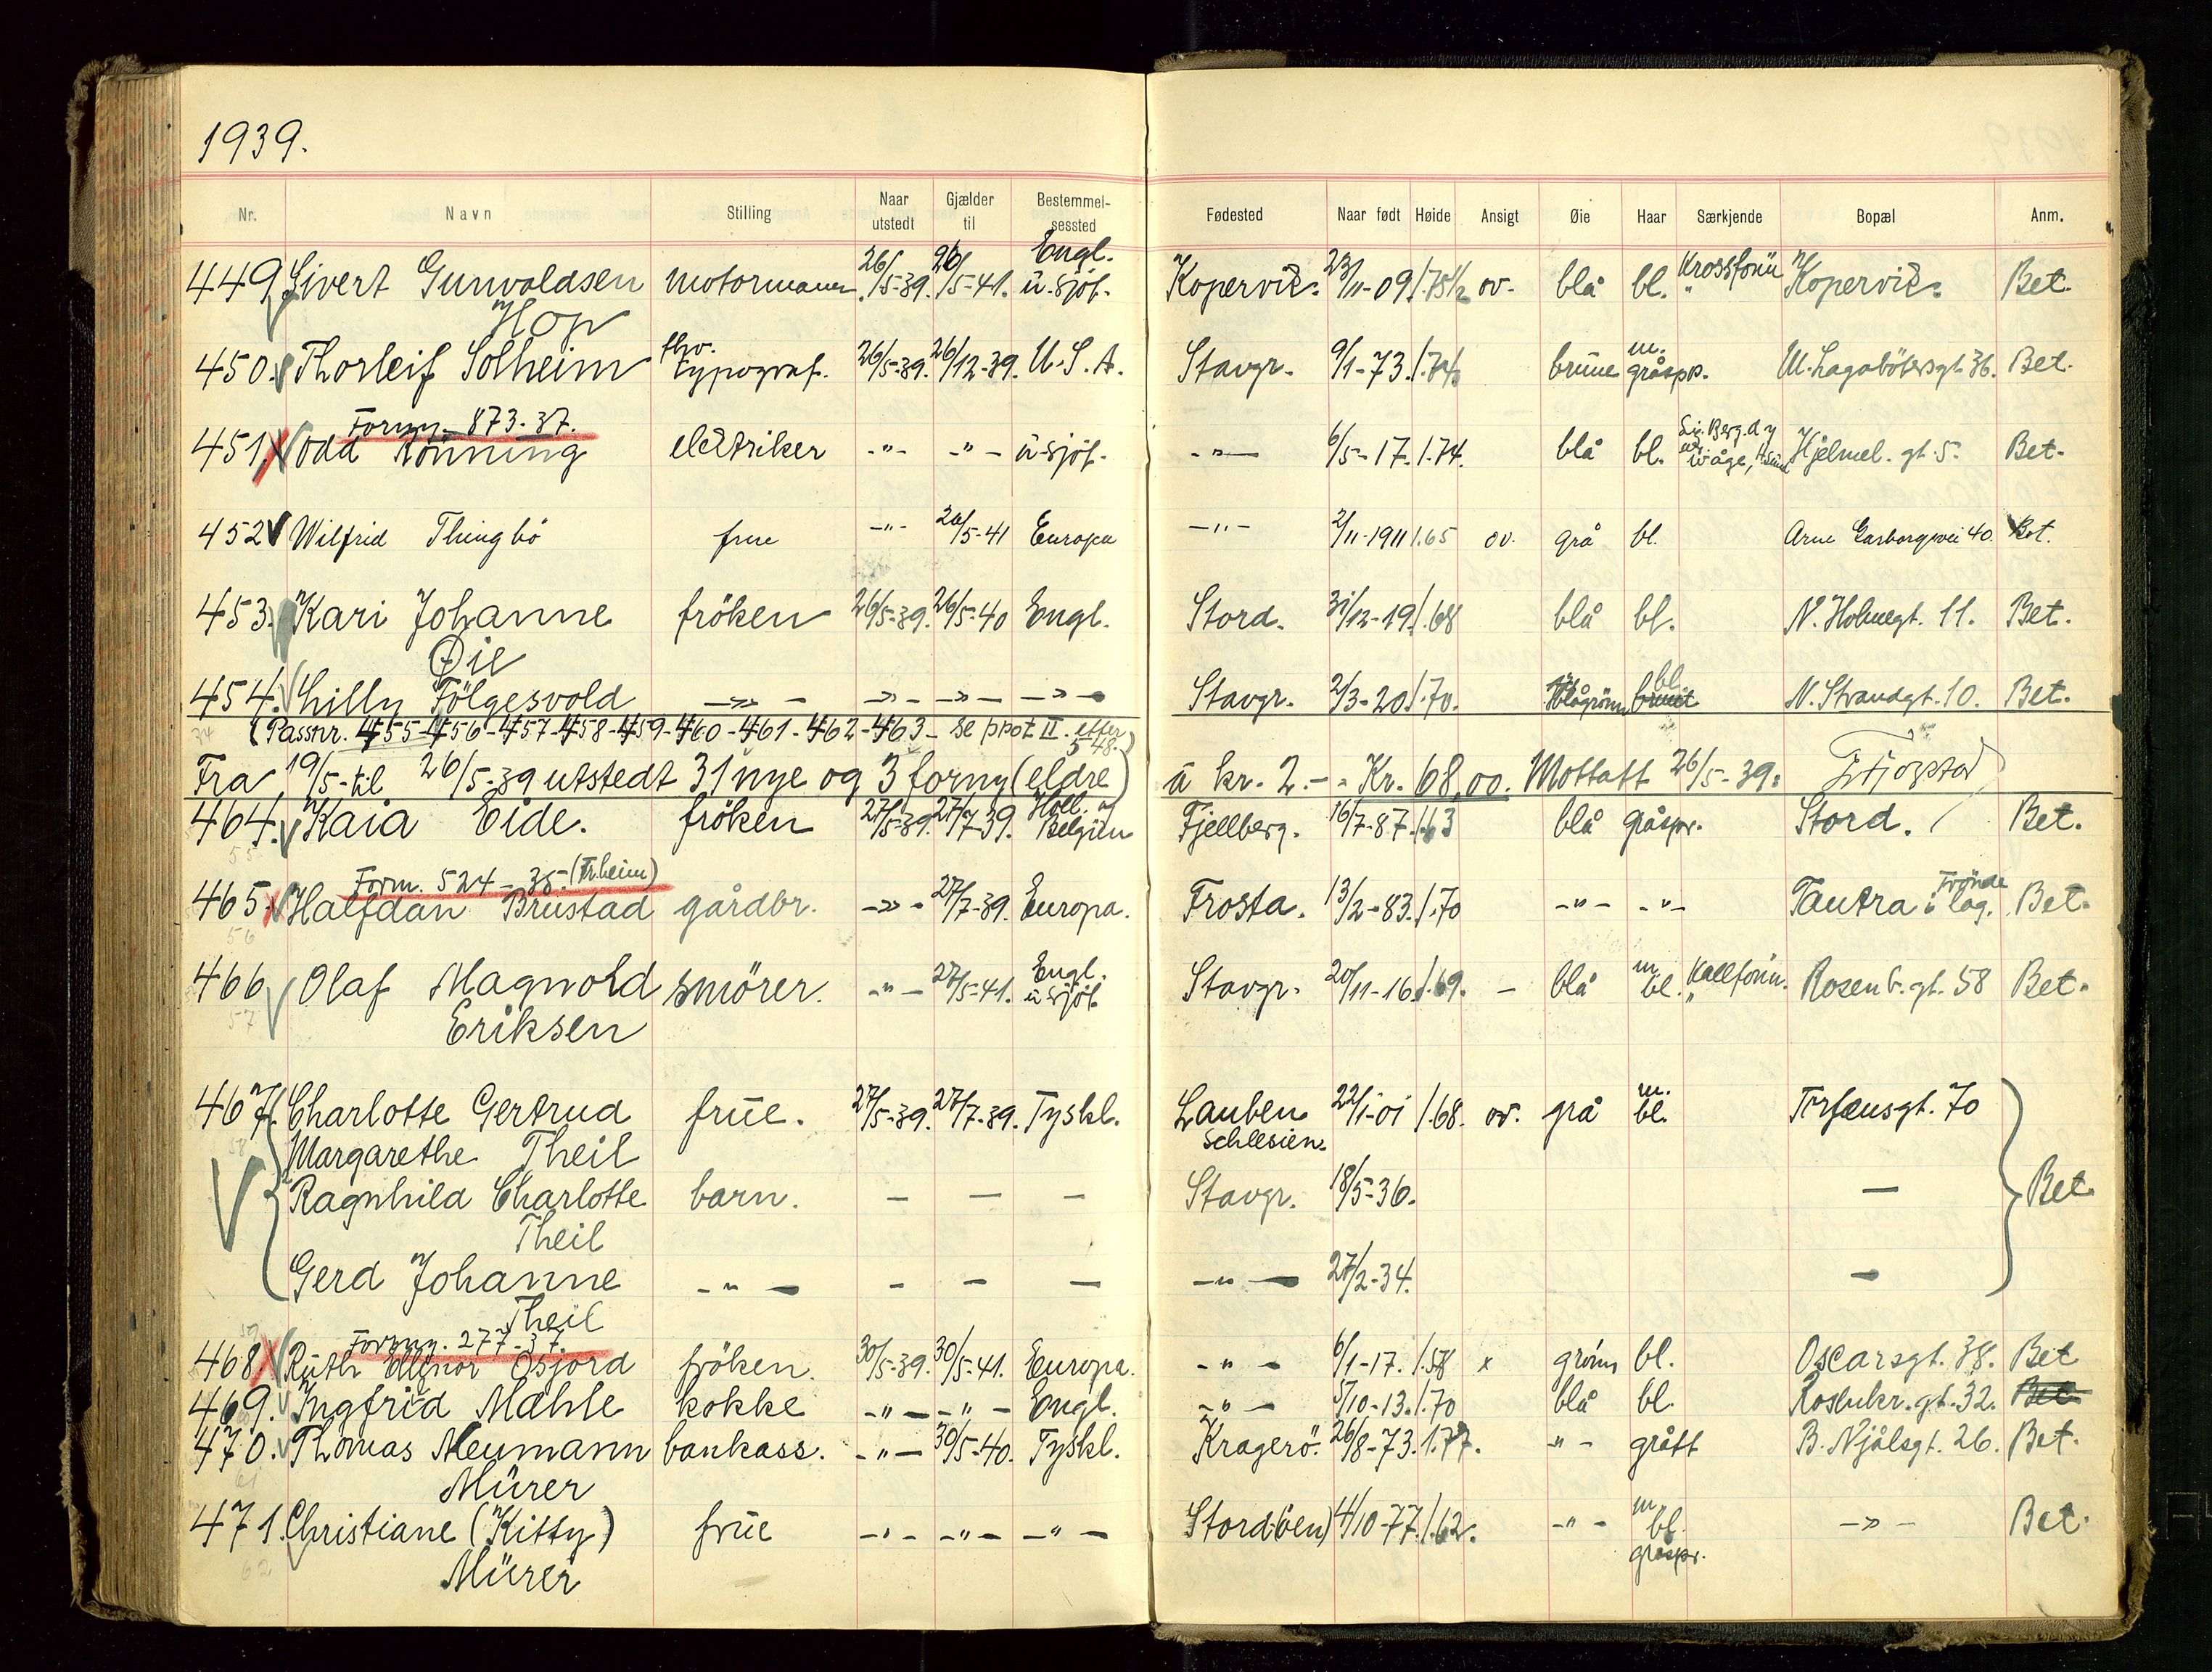 1939.
Nr. Navn Stilling Naar utstedt Gjælder til Bestemmelsessted Fødested Naar født Høide Ansigt Øie Haar Særkjende Bopæl Anm.
449 Sivert Gunvoldsen motormann 26/5-39. 26/5-41. Engl. u-sjöf. Kopervik. 23/11-09 1.75½ ov. blå bl. Kopervik. Bet.
Hop
450. Thorleif Solheim fhv. typograf. 26/5-39. 26/12-39. U.S.A. Stavgr. 9/1-73. brune m. gråspr. M. Lagabötersgt. 36. Bet.
Forny. 873-37.
451. Odd Rönning elektriker -"- -"- u-sjöf. -"- 6/5-17. 1.74. blå bl. Hjelmel. gt. 5. Bet.
452 Wilfrid Thingbö frue -"- 26/5-41 Europa -"- 2/11-1911 1.65 ov. grå bl. Arne Garborgsvei 40. Bet.
453. Kari Johanne fröken 26/5-39. 26/5-40 Engl. Stord. 31/12-19. 1.68 blå bl. N. Holmegt. 11. Bet.
Øie
454. Lilly Fölgesvold -»- -»- -»- -»- Stavgr. 2/3-20. 1.70. bl. N. Strandgt. 10. Bet.
(Passnr. 455-456-457-458-459-460-461-462-463- se ppot II. etter 548.)
Fra 19/5-til 26/5-39 utstedt 31 nye og 3 forny (eldre) a kr. 2.- = Kr. 68,00. Mottatt 26/5-39:
464. Kaia Eide. fröken 27/5-39. 27/7-39. Holl. og Belgien Fjellberg. 16/7-87. 1.63 blå gråspr. Stord. Bet.
Forn. 524-38. (Tr.heim)
465. Halfdan Brustad gårdbr. -»- 27/7-39. Europa. Frosta. 13/2-83. 1.70 -"- -"- Tautra i Trönde lag. Bet.
466 Olaf Magnvold smörer. -"- 27/5-41. Engl. u-sjöf. Stavgr. 20/11-16. 1.69. - blå m bl. Rosenb. gt. 58 Bet.
Eriksen
467. Charlotte Gertrud frue. 27/5-39. 27/7-39. Tyskl. Lauben 22/1-01 1.68. ov. grå m. bl. Torfæusgt. 70
Margarethe Theil Schlesien.
Ragnhild Charlotte barn. - - - Stavgr. 18/5-36. - Bet.
Theil
Gerd Johanne -"- - - - -"- 27/2-34. -
Theil
Forny. 277-37.
468 Ruth Ellinor Osjord fröken. 30/5-39. 30/5-41. Europa. -"- 6/1-17. 1.58 x grönn bl. Oscarsgt. 38. Bet
469. Ingfrid Mæhle kokke -"- -"- Engl. -"- 5/10-13. 1.70 blå bl. Rosenkr. gt. 32. Bet
470. Thomas Neumann bankass. -"- 30/5-40. Tyskl. Kragerö. 26/8-73. 1.77. "- grått B. Njålsgt. 26. Bet.
Mürer
471. Christiane (Kitty) frue -"- -"- -"- Stord(öen) 4/10-77. 1.62. -"- m bl. gråspr. -»- Bet.
Mürer